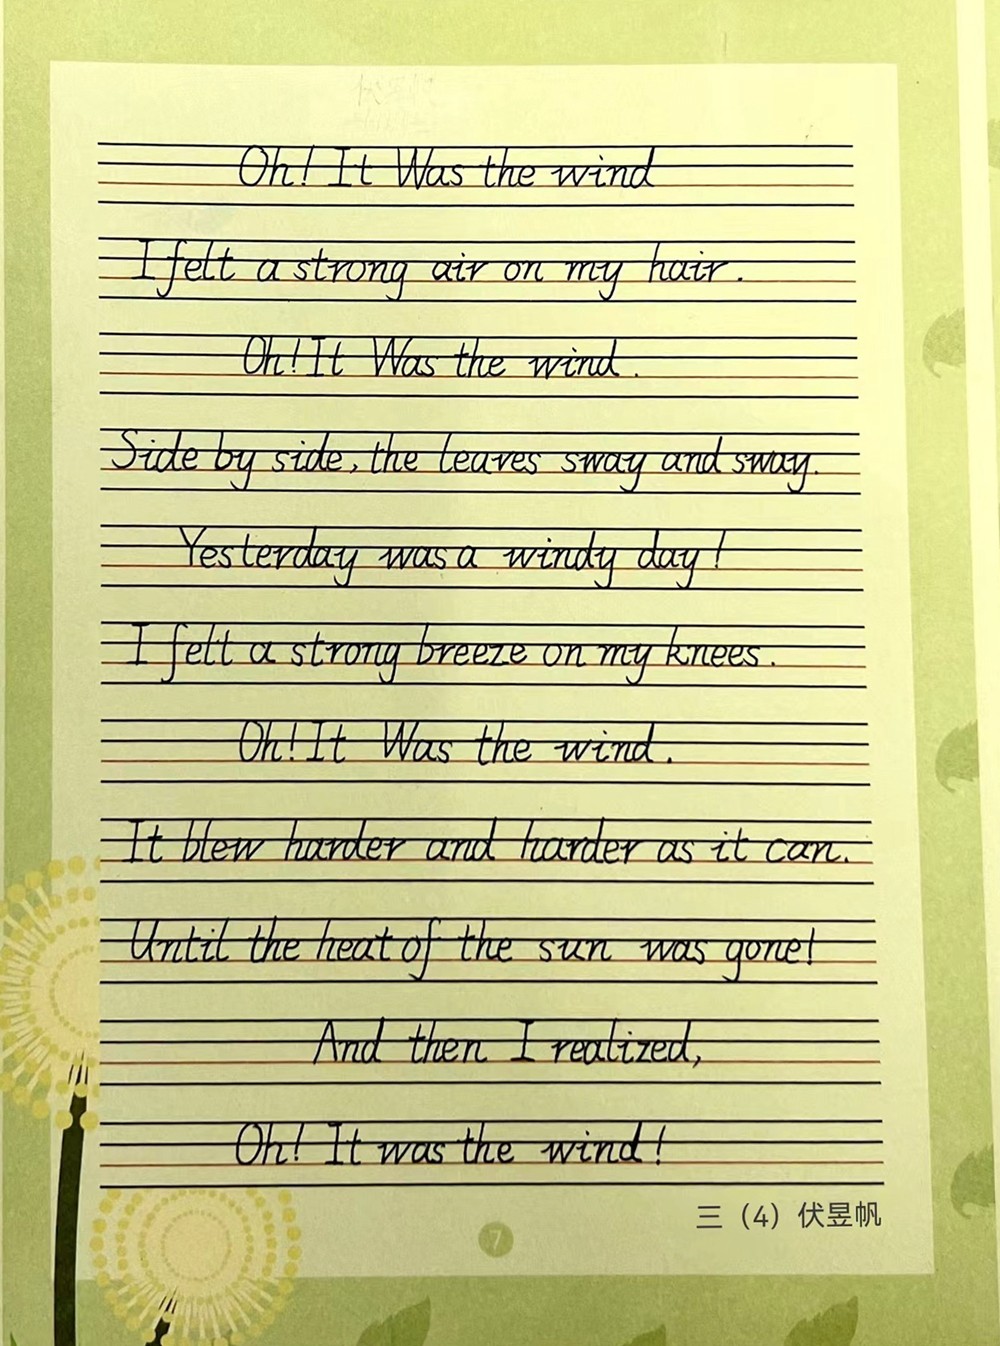 Oh! It Was the wind
I felt a strong air on my hair.
Oh! It Was the wind.
Side by side, the leaves sway and sway.
Yesterday was a windy day!
I felt a strong breeze on my knees.
Oh! It Was the wind.
It blew harder and harder as it can.
Until the heat of the sun was gone!
And then I realized,
Oh! It was the wind!
三（4）伏昱帆
7